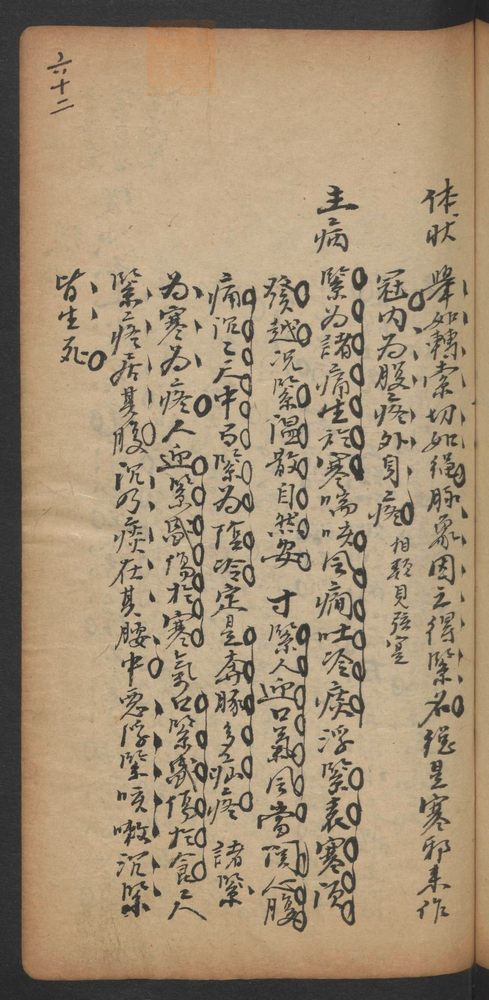 六十二
体状 舉如轉索切如繩脉象因之得緊名總是寒邪来作
冠内為腹疼外身疼 相類見弦
主病 緊為諸痛主於寒喘咳風癇吐冷痰浮緊表寒須
發越沉緊温散自然安 寸緊人迎口氣分當関心腹
痛沉沉尺中有緊為陰冷定是奔豚与疝疼 諸緊
為寒為疼人迎緊盛傷於寒氣口緊盛傷於食尺
緊疼居其腹沉乃疾在其腰中惡浮緊咳嗽沉緊
皆主死